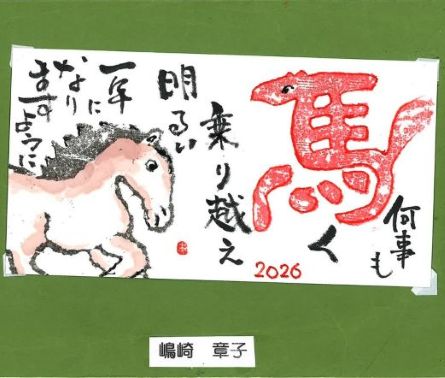 何事も
馬く
乗り越え
明るい
一年に
なり
ますように
2026
嶋崎 章子